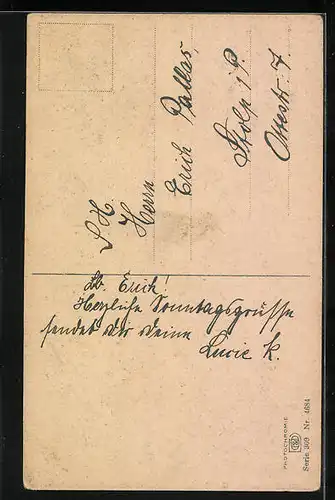 S. H.
Herrn
Erich Pallas
Stolp i/P.
Lb. Erich!
Herzliche Sonntagsgrüsse
sendet dir deine
Lucie K.
PHOTOCHROMIE
Serie 309 Nr. 4684